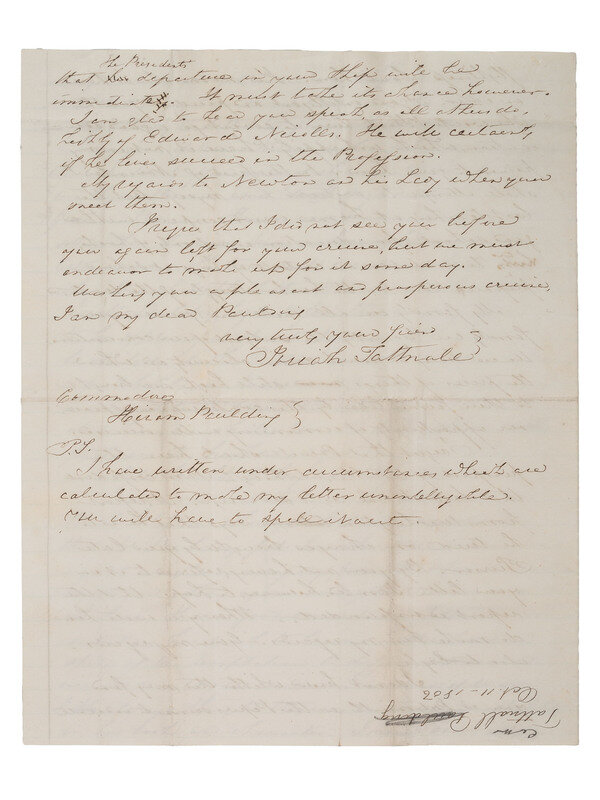 the Presidents
that departure in your Ship will be
immediate. It must take its chance however.
I am glad to hear you speak, as all others do,
highly of Edward Nicolls. He will certainly
if he lives succeed in the Profession.
My regards to Newton and his Lady when you
meet them.
I regret that I did not see you before
you again left for your cruise, but we must
endeavor to make up for it some day.
Wishing you a pleasant and prosperous cruise,
I am my dear Paulding
very truly your friend
Josiah Tattnall
Commodore
Hiram Paulding
P.S.
I have written under circumstances which are
calculated to make my letter unintelligible.
You will have to spell it out.
Com
Tattnall Paulding
Oct. 11 - 1856